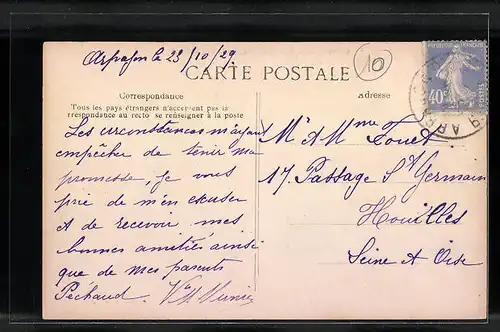 Arpajon le 23/10/29
10
CARTE POSTALE
Correspondance
Adresse
Tous les pays étrangers n'acceptent pas la
correspondance au recto se renseigner à la poste
REPUBLIQUE FRANÇAISE
40c
POSTES
Les circonstances m'ayant
empêcher de tenir ma
promesse, je vous
prie de m'en excuser
et de recevoir mes
bonnes amitiés ainsi
que de mes parents
Péchaud.
Mr & Mme
17. Passage St Germain
Houilles
Seine et Oise